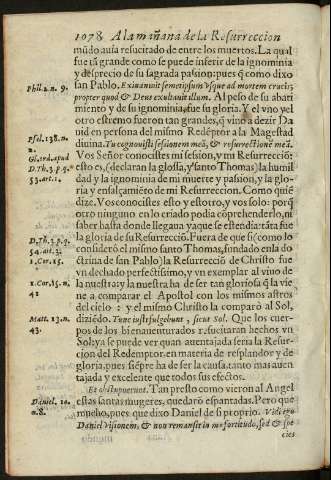 1078 A la mañana de la Resurreccion
mūdo auia resucitado de entre los muertos. La qual
fue tā grande como se puede inferir de la ignominia
y desprecio de su sagrada passion: pues q̄ como dixo
Phil. 2. n. 9. san Pablo. Exinaniuit semetipsum vsque ad mortem crucis;
propter quod & Deus exaltauit illum. Al peso de su abati
miento y de su ignominia, fue su gloria. Y el vno y el
otro estremo fueron tan grandes, q̄ vino a dezir Da
uid en persona del mismo Redēptor a la Magestad
Psal. 138. n. 2. diuina. Tu cognouisti sessionem meā, & resurrectionē meā.
Vos Señor conocistes mi sesion, y mi Resurreciō:
Gl. ord. apud D. Th. 3. p. q. 53. art. 1. esto es, (declaran la glosa, y santo Thomas) la humil
dad y la ignominia de mi muerte y passion, y la glo-
ria y ensalçamiēto de mi Resurreccion. Como quiē
dize. Vos conocistes esto y estotro, y vos solo: porq̄
otro ninguno en lo criado podia cōprehenderlo, ni
saber hasta donde llegaua ya que se estendia: tāta fue
D. Th. 3. p. q. 54. art. 3. la gloria de su Resurrecciō. Fuera de que si (como lo
considerò el mismo santo Thomas, fundado en la do
1. Cor. 15. ctrina de san Pablo) la Resurrecciō de Christo fue
vn dechado perfectissimo, y vn exemplar al viuo de
la nuestra: y la nuestra ha de ser tan gloriosa q̄ la vie
1. Cor. 15. n. 41 ne a comparar el Apostol con los mismos astros
del cielo: y el mismo Christo la comparò al Sol,
Matt. 13. n. 43. diziēdo. Tunc iusti fulgebunt, sicut Sol. Que los cuer-
pos de los bienauenturados resucitaran hechos vn
Sol; ya se puede ver quan auentajada seria la Resur-
cion del Redemptor, en materia de resplandor y de
gloria, pues siēpre ha de ser la causa, tanto mas auen
tajada y excelente que todos sus efectos.
Et obstupuerunt. Tan presto como vieron al Angel
Daniel. 10. n. 8. estas santas mugeres, quedarō espantadas. Pero que
mucho, pues que dixo Daniel de si proprio. Vidi ego
Daniel visionem, & non remansit in me fortitudo, sed & spe
cies